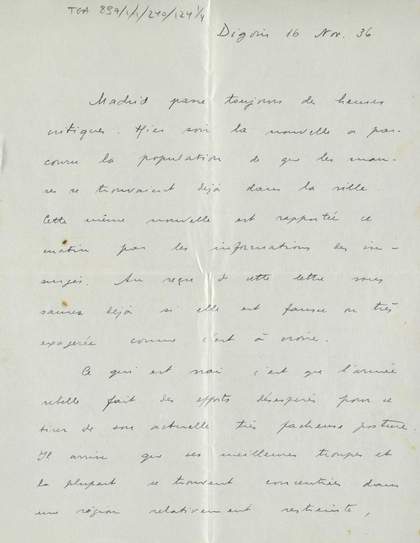 TGA 897/1/1/240/124 1/4
Digoin 16 Nov. 36
Madrid passe toujours de heures
critiques. Hier soir la nouvelle a par-
couru la population de que les mau-
res se trouvaient déjà dans la ville
Cette même nouvelle est rapportée ce
matin par les informations des in-
surgés. Au reçu de cette lettre vous
saurez déjà si elle est fausse ou très
exagérée comme c'est à croire.
Ce qui est vrai c'est que l'armée
rebelle fait des efforts désesperés pour se
tirer de son actuelle très facheuse posture.
Il arrive que ses meilleures troupes et
la plupart se trouvent concentrées dans
une région relativement restreinte,